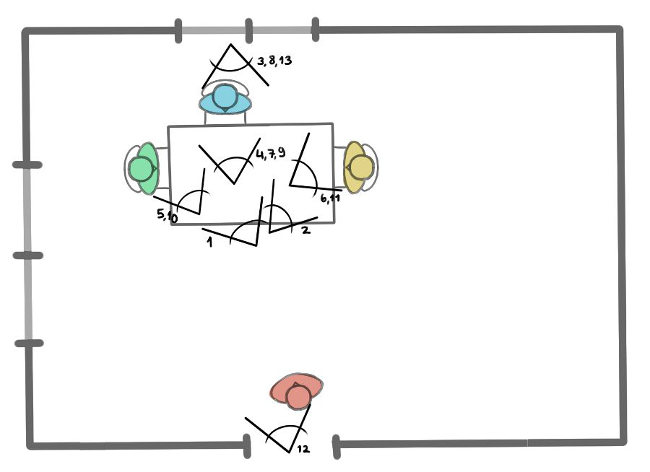 3,8,13
4,7,9
6,11
5,10
1
2
12